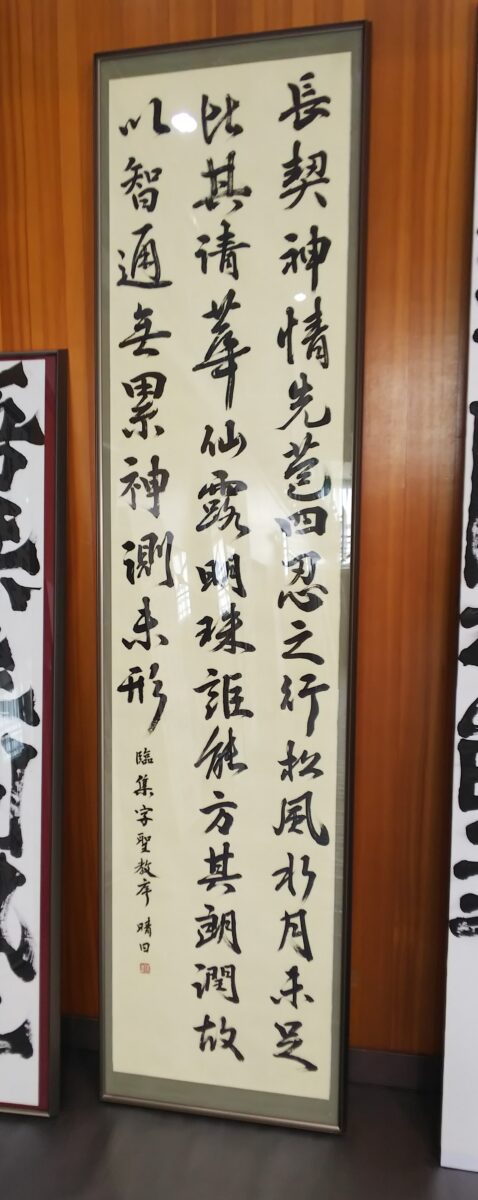 長契神情先苞四忍之行松風水月未足
比其清華仙露明珠詎能方其朗潤故
以智通無累神測未形
臨集字聖教序 晴